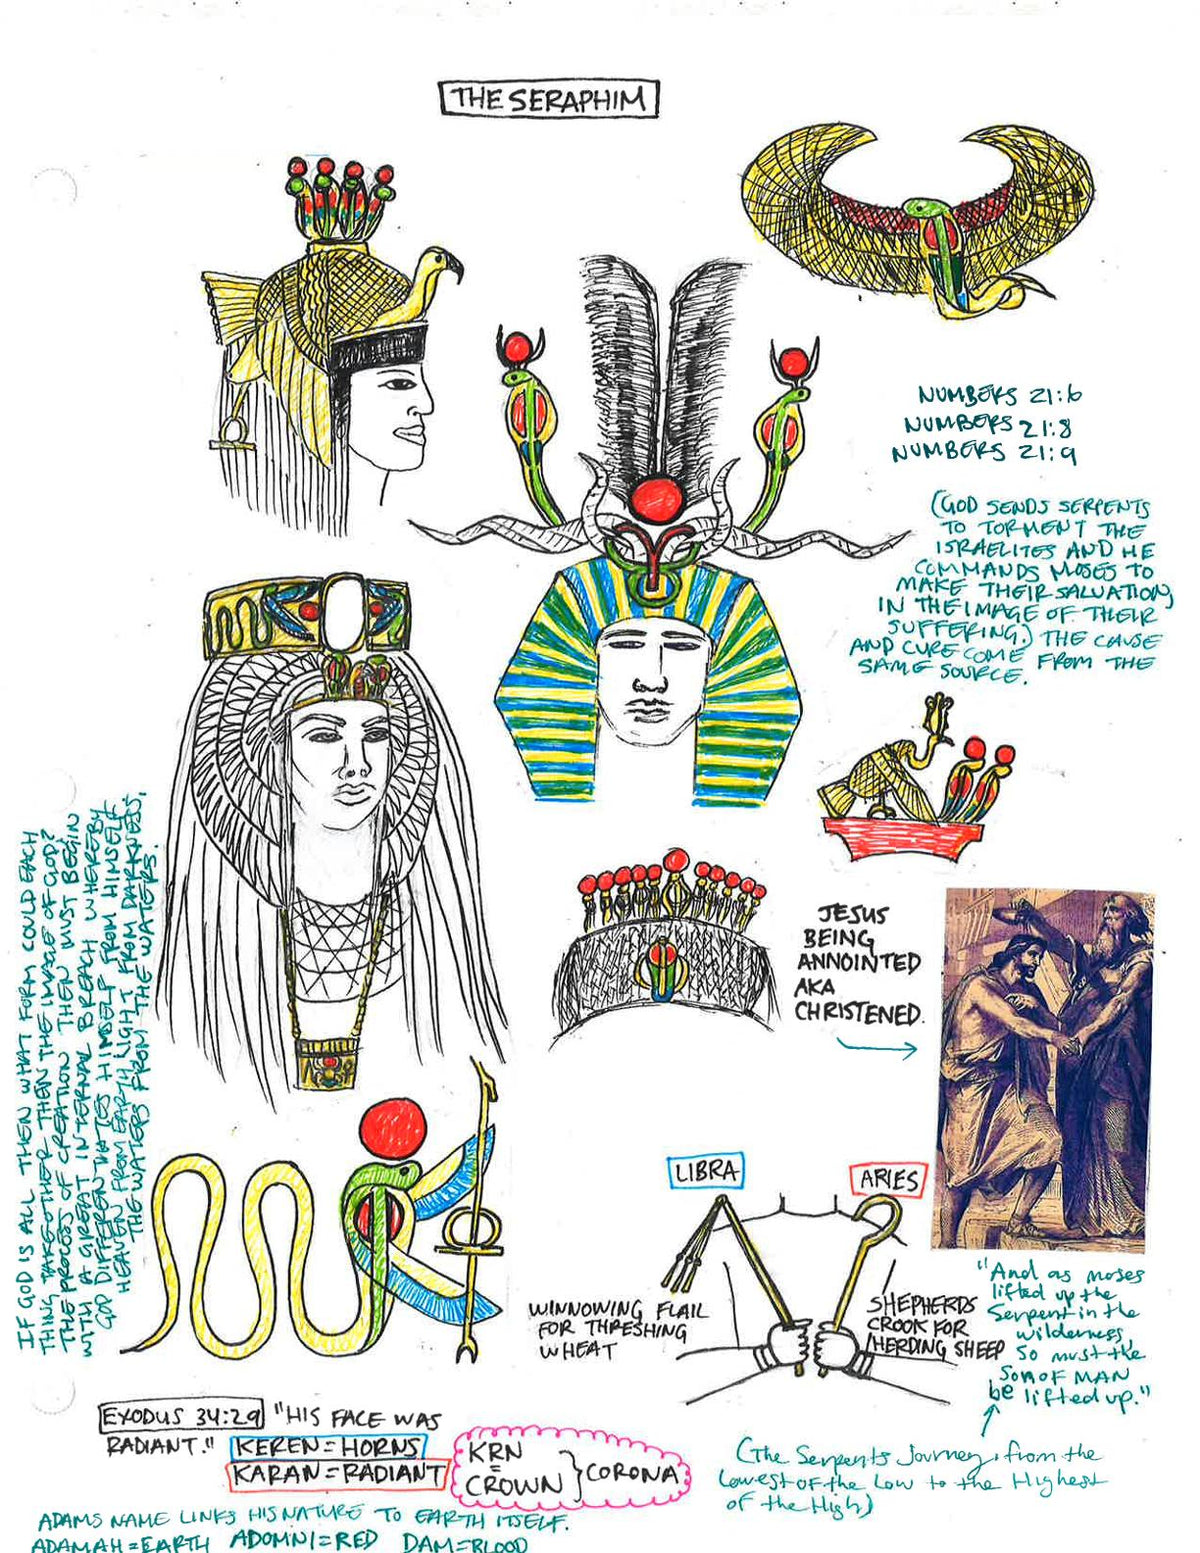 THE SERAPHIM
NUMBERS 21:6
NUMBERS 21:8
NUMBERS 21:9
(GOD SENDS SERPENTS
TO TORMENT THE
ISRAELITES AND HE
COMMANDS MOSES TO
MAKE THEIR SALVATION,
IN THE IMAGE OF THEIR
SUFFERING.) THE CAUSE
AND CURE COME FROM THE
SAME SOURCE.
IF GOD IS ALL THEN WHAT FORM COULD EACH
THING TAKE OTHER THEN THE IMAGE OF GOD?
THE PROCESS OF CREATION THEN MUST BEGIN
WITH A GREAT INTERNAL BREACH WHEREBY
GOD DIFFERENTIATES HIMSELF FROM HIMSELF
HEAVEN FROM EARTH, LIGHT FROM DARKNESS,
THE WATERS FROM THE WATERS.
JESUS
BEING
ANNOINTED
AKA
CHRISTENED.
LIBRA
ARIES
WINNOWING FLAIL
FOR THRESHING
WHEAT
SHEPHERDS
CROOK FOR
HERDING SHEEP
"And as moses
lifted up the
Serpent in the
wilderness,
so must the
Son OF MAN
be lifted up."
(The Serpents Journey, from the
Lowest of the Low to the Highest
of the High)
EXODUS 34:29 "HIS FACE WAS
RADIANT." KEREN=HORNS
KARAN=RADIANT
KRN
=
CROWN } CORONA
ADAMS NAME LINKS HIS NATURE TO EARTH ITSELF.
ADAMAH=EARTH ADOMNI=RED DAM=BLOOD